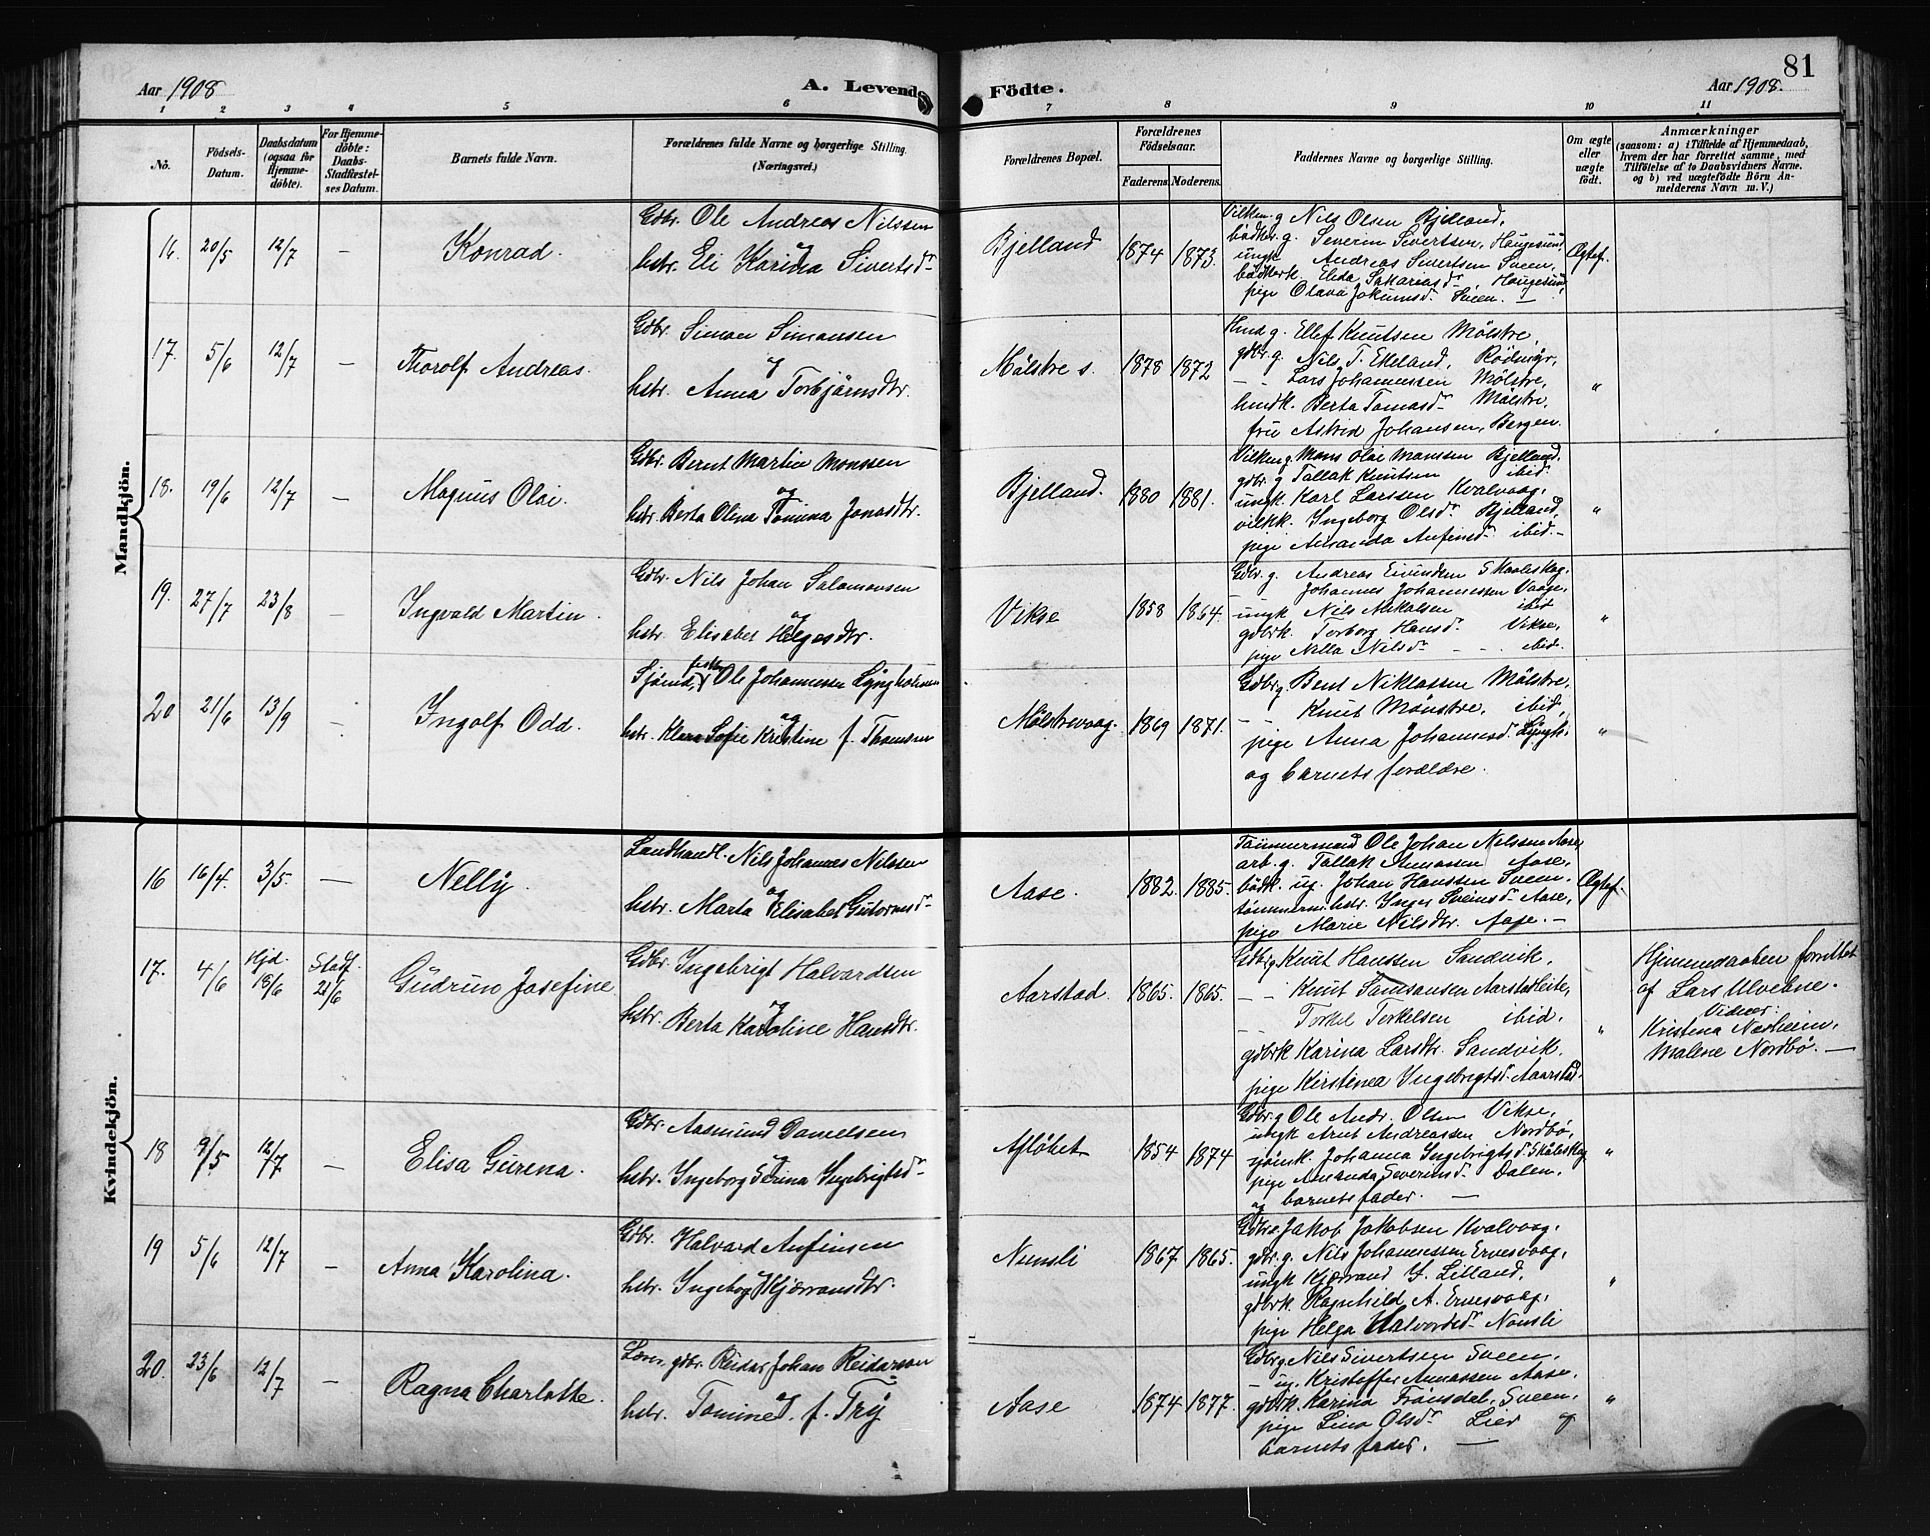 81
Aar 1908
A. Levende
Födte.
Aar 1908.
1 2 3 4 5 6 7 8 9 10 11
No.
Födsels-
Datum.
Daabsdatum
(ogsaa for
Hjemme-
döbte).
For Hjemme-
döbte:
Daabs-
Stadfæstel-
ses Datum.
Barnets fulde Navn.
Forældrenes fulde Navne og borgerlige Stilling.
(Næringsvei.)
Forældrenes Bopæl.
Forældrenes
Födselsaar.
Faderens.
Moderens.
Faddernes Navne og borgerlige Stilling.
Om ægte
eller
uægte
födt.
Anmærkninger
(saasom: a) i Tilfælde af Hjemmedaab,
hvem der har forrettet samme, med
Tilföielse af to Daabsvidners Navne.
og b) ved uægtefödte Börn An-
melderens Navn m. V.)
Mandkjön.
16. 20/5 12/7 — Konrad.
Gdbr. Ole Andreas Nilssen
og
hstr. Eli Karina Sivertsdr
Bjelland 1874 1873.
Vilkm. g Nils Olsen Bjelland,
bödker. g. Severin Sivertsen, Haugesund
ungk Andreas Sivertsen Sveen,
bödkerk. Elida Sakariasdr, Haugesund,
pige Olava Jokumsdr Sveen. —
Ægtef.
17. 5/6 12/7 — Thorolf Andreas.
Gdbr. Simon Simonsen
og
hstr. Anna Torbjörnsdtr.
Mölstre s. 1878 1872
Hmd g. Ellef Knutsen Mölstre,
gdbr. g. Nils T. Ekeland, Rödmyr,
— - Lars Johannessen Mölstre,
hmdk. Berta Tomasdr Mölstre,
fru Astrid Johansen, Bergen.
"
18. 19/6 12/7 — Magnus Olai.
Gdbr. Bernt Martin Monssen
og
hstr. Berta Olina Tomina Jonasdtr.
Bjelland. 1880 1881.
Vilkm g. Mons Olai Monssen Bjelland.
gdbr. g Tallak Knutsen ibid.
ungk. Karl Larssen Kvalvaag,
vilkk. Ingeborg Olsdr Bjelland,
pige Amanda Anfinsdr ibid.—
"
19. 27/7 23/8 — Ingvald Martin.
Gdbr. Nils Johan Salomonsen
og
hstr. Elisabet Helgesdtr.
Vikse 1858 1864.
Gdbr. g. Andreas Eivindsen Skaaleskog.
— Johannes Johannessen Vaage,
ungk Nils Mikalsen ibid
gdbrk. Torborg Hansdr. Vikse,
pige Nilla Nilsdr - - ibid.
"
20 21/6 13/9 - Ingolf Odd.
Sjömd, fisker Ole Johannessen Lyngholmen
og
hstr. Klara Sofie Kristine f. Thomsen
Mölstrevaag. 1869 1871.
Gdbr g. Bent Niklassen Mölstre,
— - Knut Mönstre, ibid,
pige Anna Johannesdr. Lyngh.
og barnets forældre.
"
Kvindekjön.
16 16/4. 3/5. — Nelly.
Landhandl. Nils Johannes Nilssen
og
hstr. Marta Elisabet Gutormsdr
Aase. 1882. 1885.
Tömmermand Ole Johan Nilssen Aase,
arb. g. Tallak Aamassen Aase,
bödk. ug. Johan Hanssen Sveen,
tömmerm. hstr. Inger Sveinsdr Aase,
pige Marie Nilsdtr. Aase. —
Ægtef.
17. 4/6 Hjd. 18/6 Stadf. 21/6 Gudrun Josefine
Gdbr. Ingebrigt Halvardsen
og
hstr. Berta Karoline Hansdtr.
Aarstad. 1865. 1865.
Gdbr g Knut Hanssen Sandvik,
— - Knut Samsonsen Aarstadleite,
— Torkel Torkelsen ibid.
gdbrk Karina Larsdtr. Sandvik.
pige Kirstinea Ingebrigtsdr Aarstad.
"
Hjemmedaaben forrettet
af Lars Ulvehne.
Vidner:
Kristina Nesheim,
Malene Nordbö. —
18 9/5 12/7 — Elisa Gurena.
Gdbr. Aasmund Danielsen
og
hstr. Ingeborg Serina Ingebrigtsdr
Aflöhet 1854 1874
Gdbr. g Ole Andr. Olsen Vikse,
ungk Arnt Andreassen Nordbö,
sjömk. Johanna Ingebrigtsdr Skåleskog
pige Amanda Severinsdr Dalen,
og barnets fader. —
"
19 5/6 12/7 — Anna Karolina.
Gdbr. Halvard Anfinsen
og
hstr. Ingeborg Kjærransdtr.
Nonsli 1867. 1865.
Gdbr. g Jakob Jakobsen Kvalvaag,
gdbr. g. Nils Johannessen Ervesvaag,
ungk Kjærrand S. Lilland,
gdbrk. Ragnhild A. Ervesvaag,
pige Helga Halvordsdr Nonsli
"
20. 23/6 12/7 — Ragna Charlotte.
Lærer. gdbr. Reidar Johan Reidarson
og
hstr. Tomine f. Try
Aase 1874 1877.
Gdbr g Nils Sivertsen Sveen.
— ug. Kristoffer Aamassen Aase,
gdbrk. Karina Frönsdal, Sveen,
pige Lina Olsdr Lier og
barnets fader. —
"